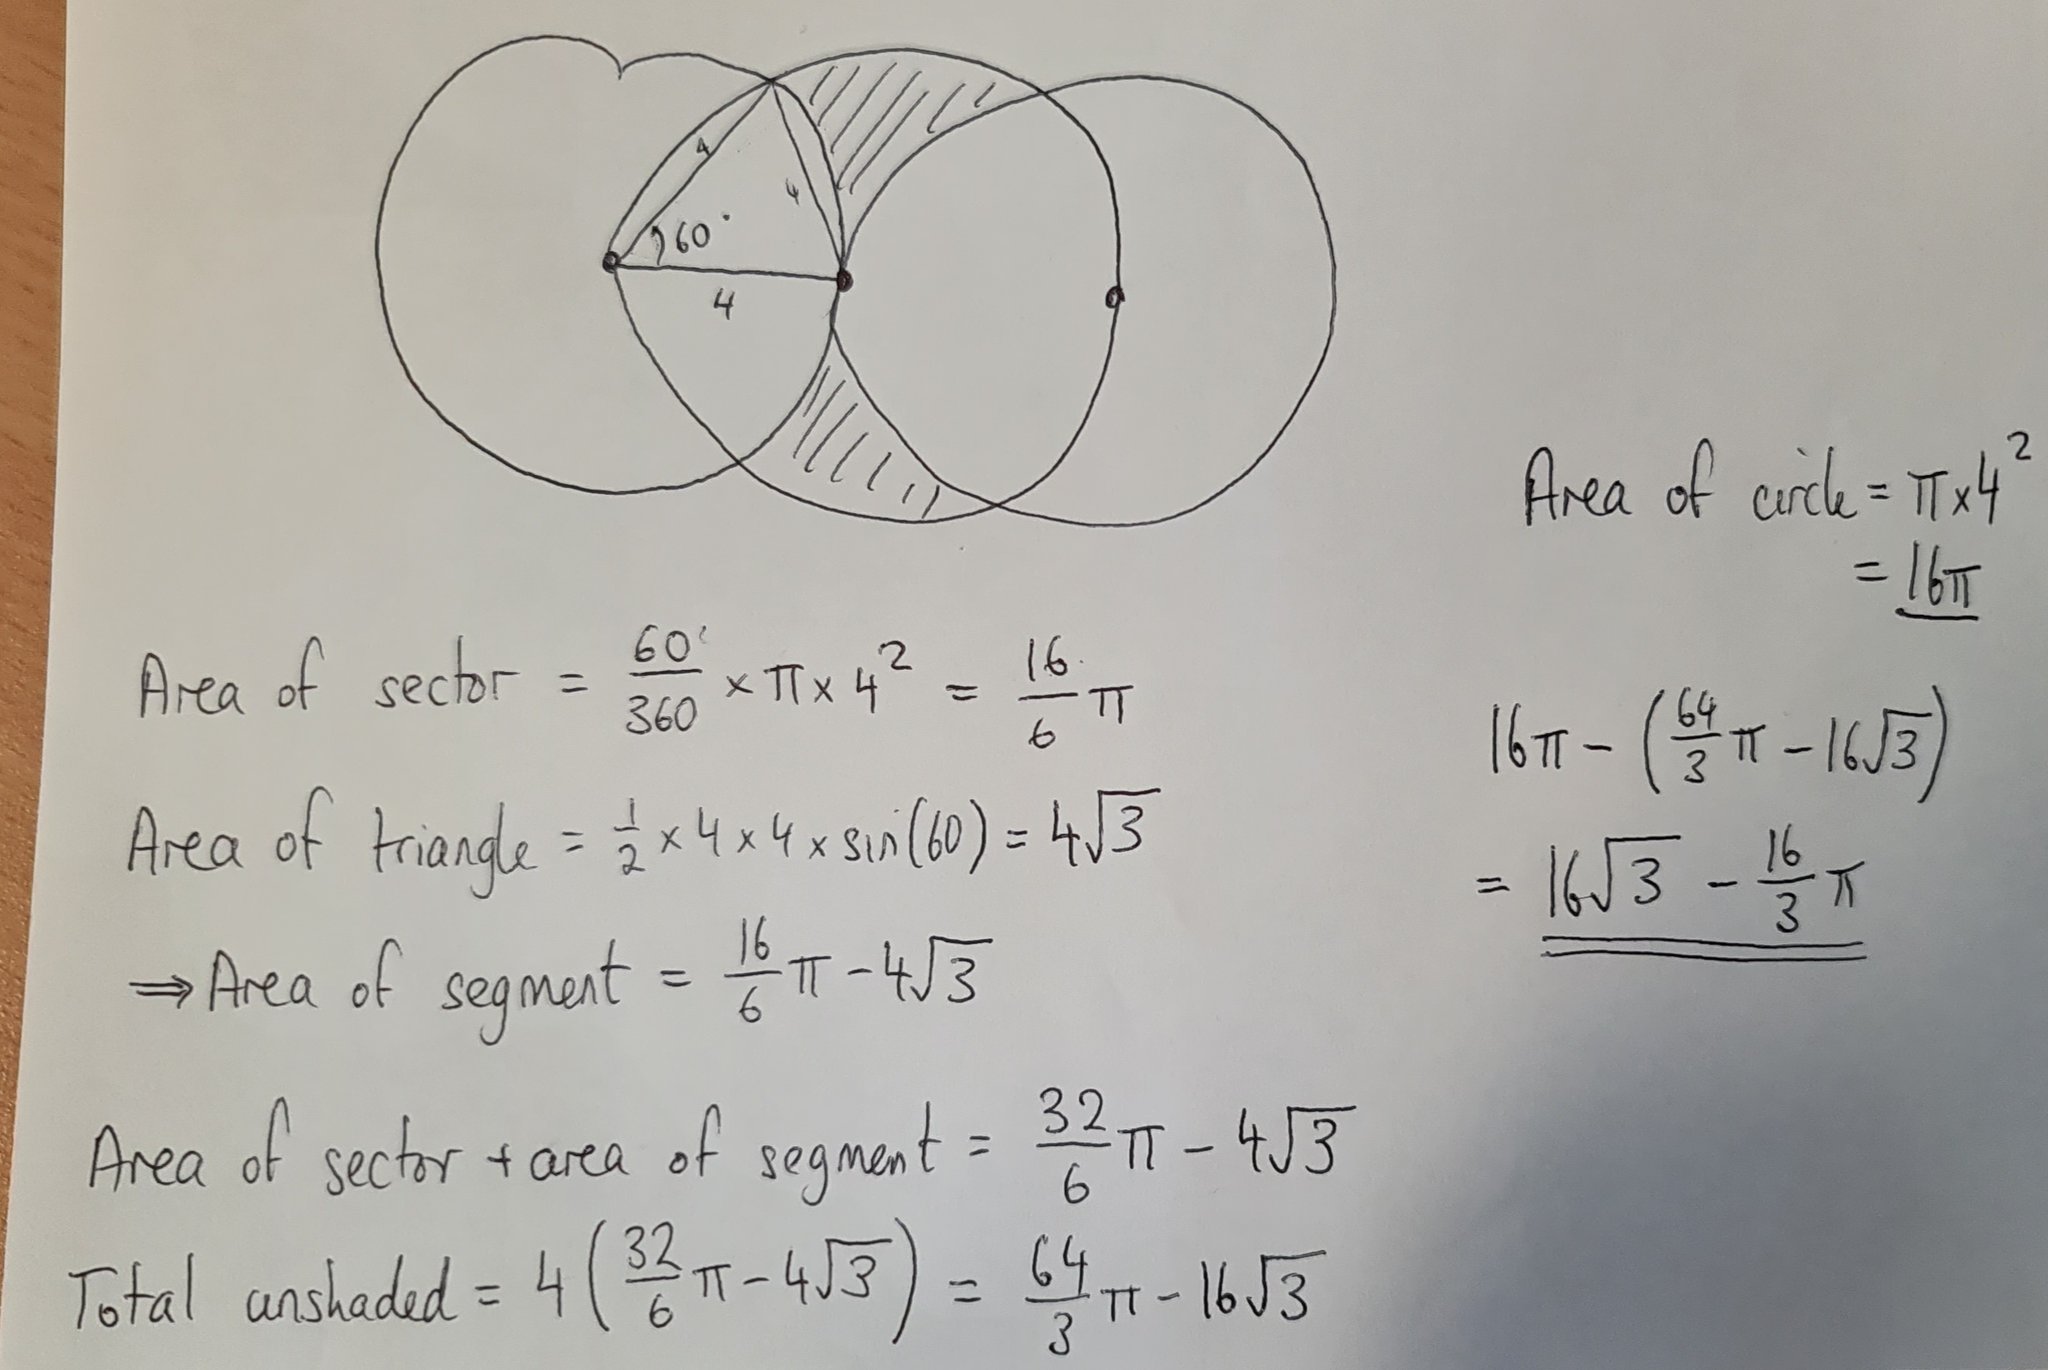 4
4
60°
4
Area of circle = π×4²
= 16π
Area of sector = 60/360 × π × 4² = 16/6 π
Area of triangle = 1/2 × 4 × 4 × sin(60) = 4√3
⇒ Area of segment = 16/6 π − 4√3
Area of sector + area of segment = 32/6 π − 4√3
Total unshaded = 4(32/6 π − 4√3) = 64/3 π − 16√3
16π − (64/3 π − 16√3)
= 16√3 − 16/3 π